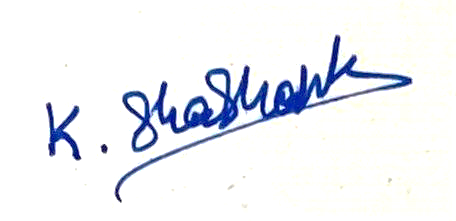 K. Shashank